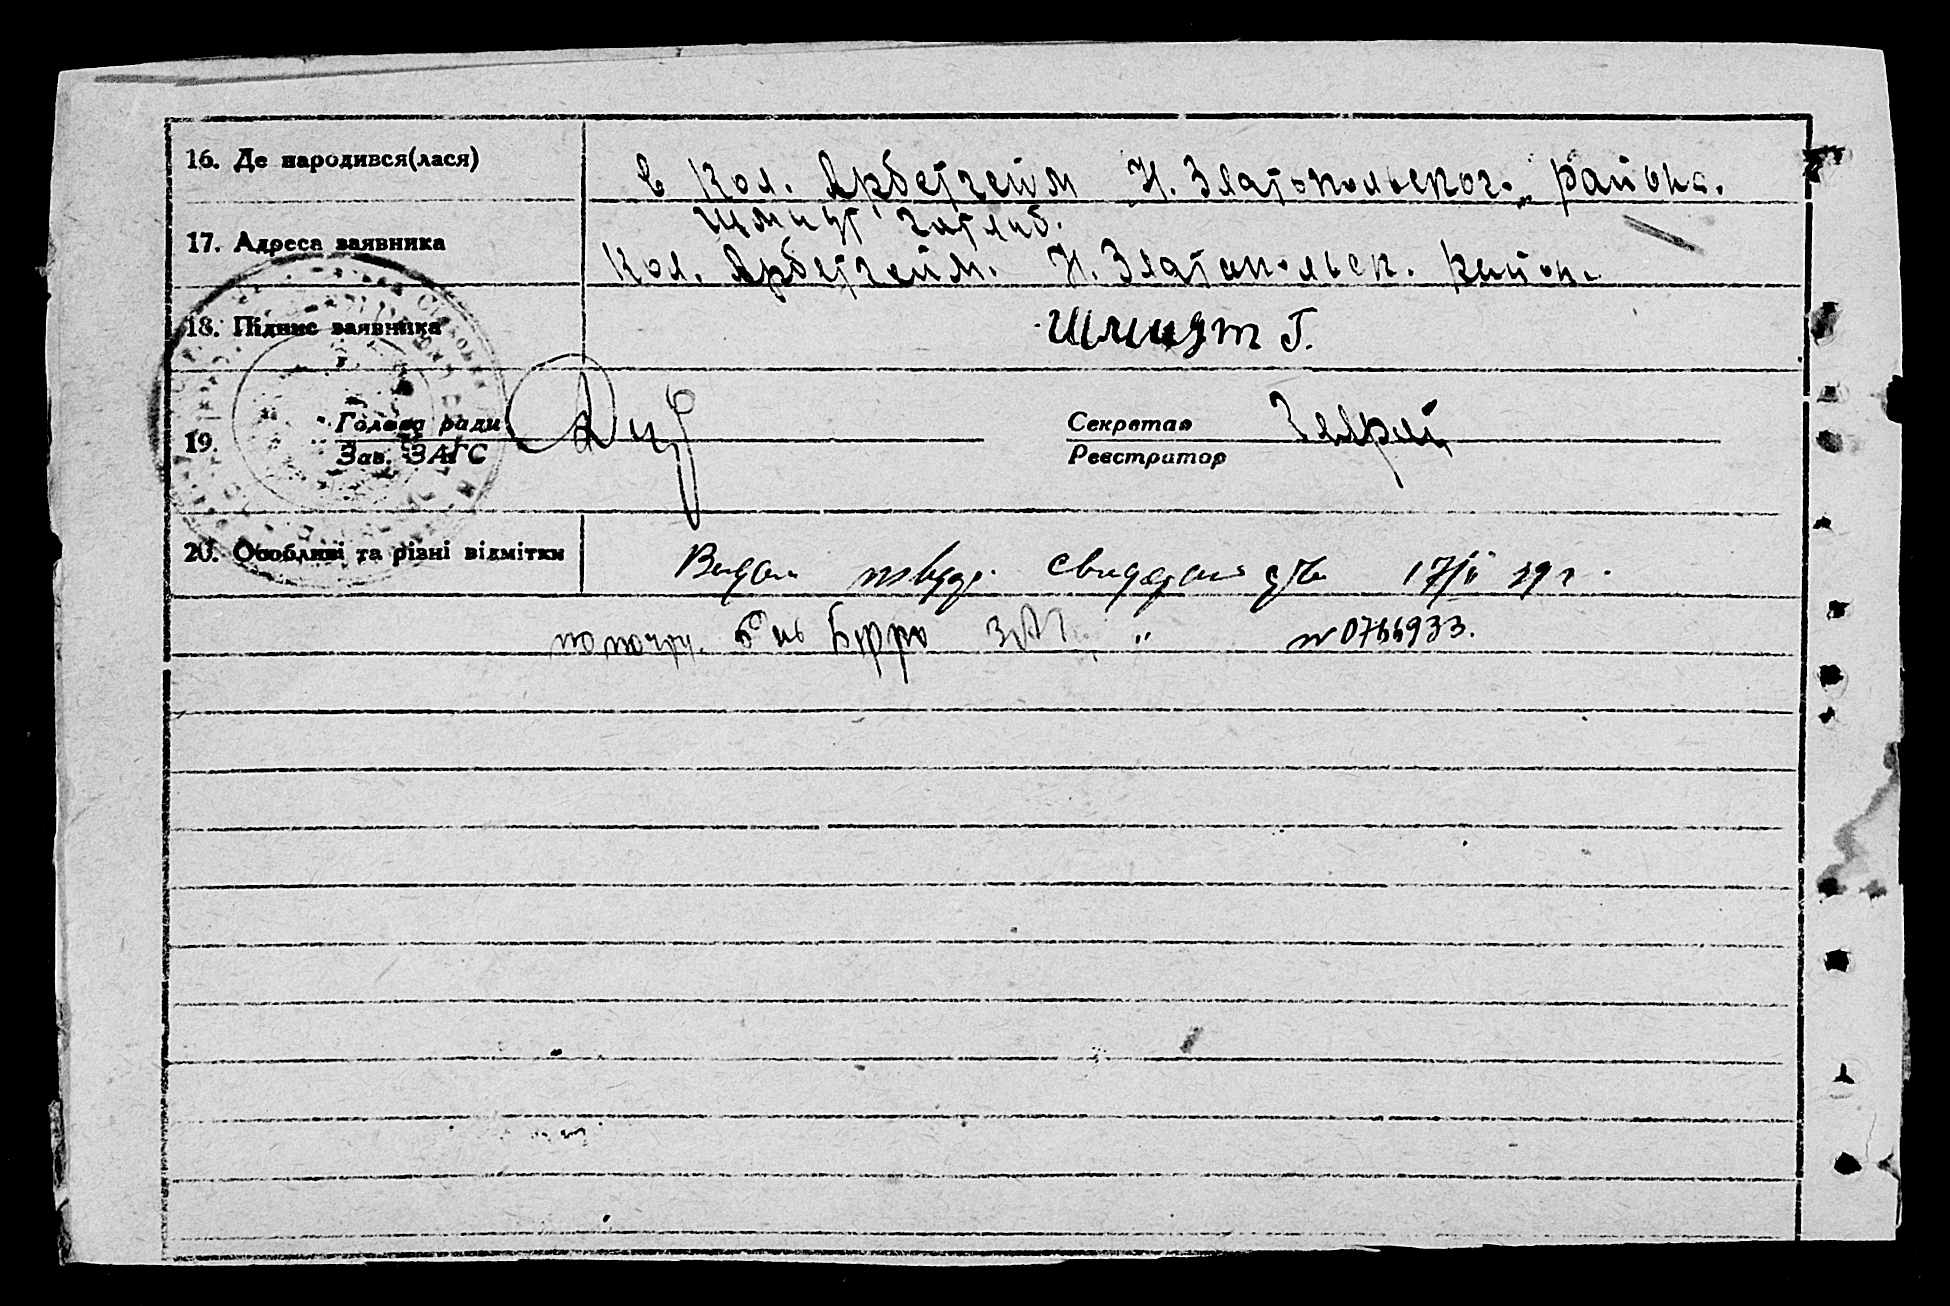 16. Де народився(лася)
в Кол. Арбетгейм Н. Златопольского района.
Шмидт Готлиб.
17. Адреса заявника
Кол. Арбетгейм. Н. Златопольск. район.
18. Підпис заявника
Шмидт Г.
19. Голова ради
Зав. ЗАГС
Секретар
Реєстратор
20. Особливі та різні відмітки
Видан свидетельство 17/II 29 г.
бюро ЗАГС " № 0766933.